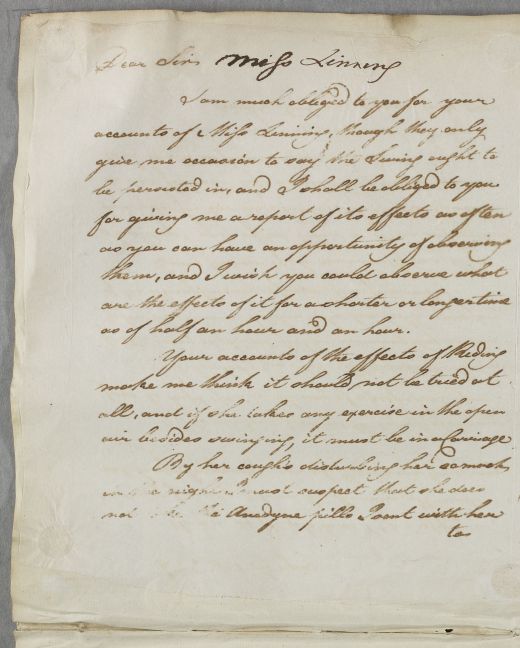 Dear Sir Miss Linning
I am much obliged to you for your
accounts of Miss Linning, though they only
give me occasion to say the Swing ought to
be persisted in, and I shall be obliged to you
for giving me a report of its effects as often
as you can have an opportunity of observing
them, and I wish you could observe what
are the effects of it for a shorter or longer time
as of half an hour and an hour.
Your accounts of the effects of Riding
make me think it should not be tried at
all, and if she takes any exercise in the open
air besides swinging, it must be in a Carriage
By her cough's disturbing her so much
in the night I must suspect that she does
not the Anodyne pills I sent with her
to